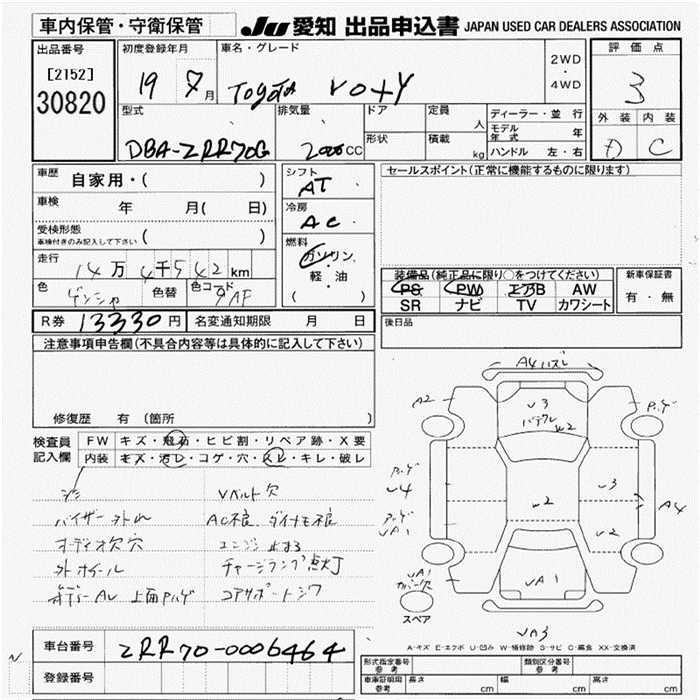 車内保管・守衛保管
JU 愛知 出品申込書 JAPAN USED CAR DEALERS ASSOCIATION
出品番号
[2152]
30820
初度登録年月
19 7 月
車名・グレード
Toyota VOXY
2WD
・
4WD
評価点
3
外装 内装
D C
型式
DBA-ZRR70G
排気量
2000 CC
ドア
形状
定員
人
積載
kg
ディーラー・並行
モデル年式 年
ハンドル 左・右
車歴
自家用・( )
車検
年 月( 日)
受検形態
車検付きのみ記入して下さい ( )
走行
14万 4千542 km
色
色替
色コード
9AF
シフト
AT
冷房
AC
燃料
ガソリン
・
軽・油
( )
セールスポイント(正常に機能するものに限ります)
装備品(純正品に限り○をつけてください)
PS PW エアB AW
SR ナビ TV カワシート
新車保証書
有・無
R券 13330円 名変通知期限 月 日
後日品
注意事項申告欄(不具合内容等は具体的に記入して下さい)
修復歴 有(箇所 )
検査員
記入欄
FW キズ・飛石・ヒビ割・リペア跡・X要
内装 キズ・汚レ・コゲ・穴・スレ・キレ・破レ
Vベルト欠
バイザー外れ AC不良、ダイナモ不良
オーディオ欠穴 エンジン止まる
外ホイール チャージランプ点灯
ボディーAU 上面Pハゲ コアサポートシワ
A4ハズレ
A2
U3
バラクレ
W2
Pハゲ
Pハゲ
U4
Pハゲ
UA1
U2
U3
U2
A4
UA1
カバー欠
スペア
UA1
UA3
A-キズ E-エクボ U-凹み W-補修跡 S-サビ C-腐食 XX-交換済
車台番号 ZRR70-0006464
登録番号
形式指定番号 参考
類別区分番号 参考
車庫証明用 参考 長さ cm 幅 cm 高さ cm